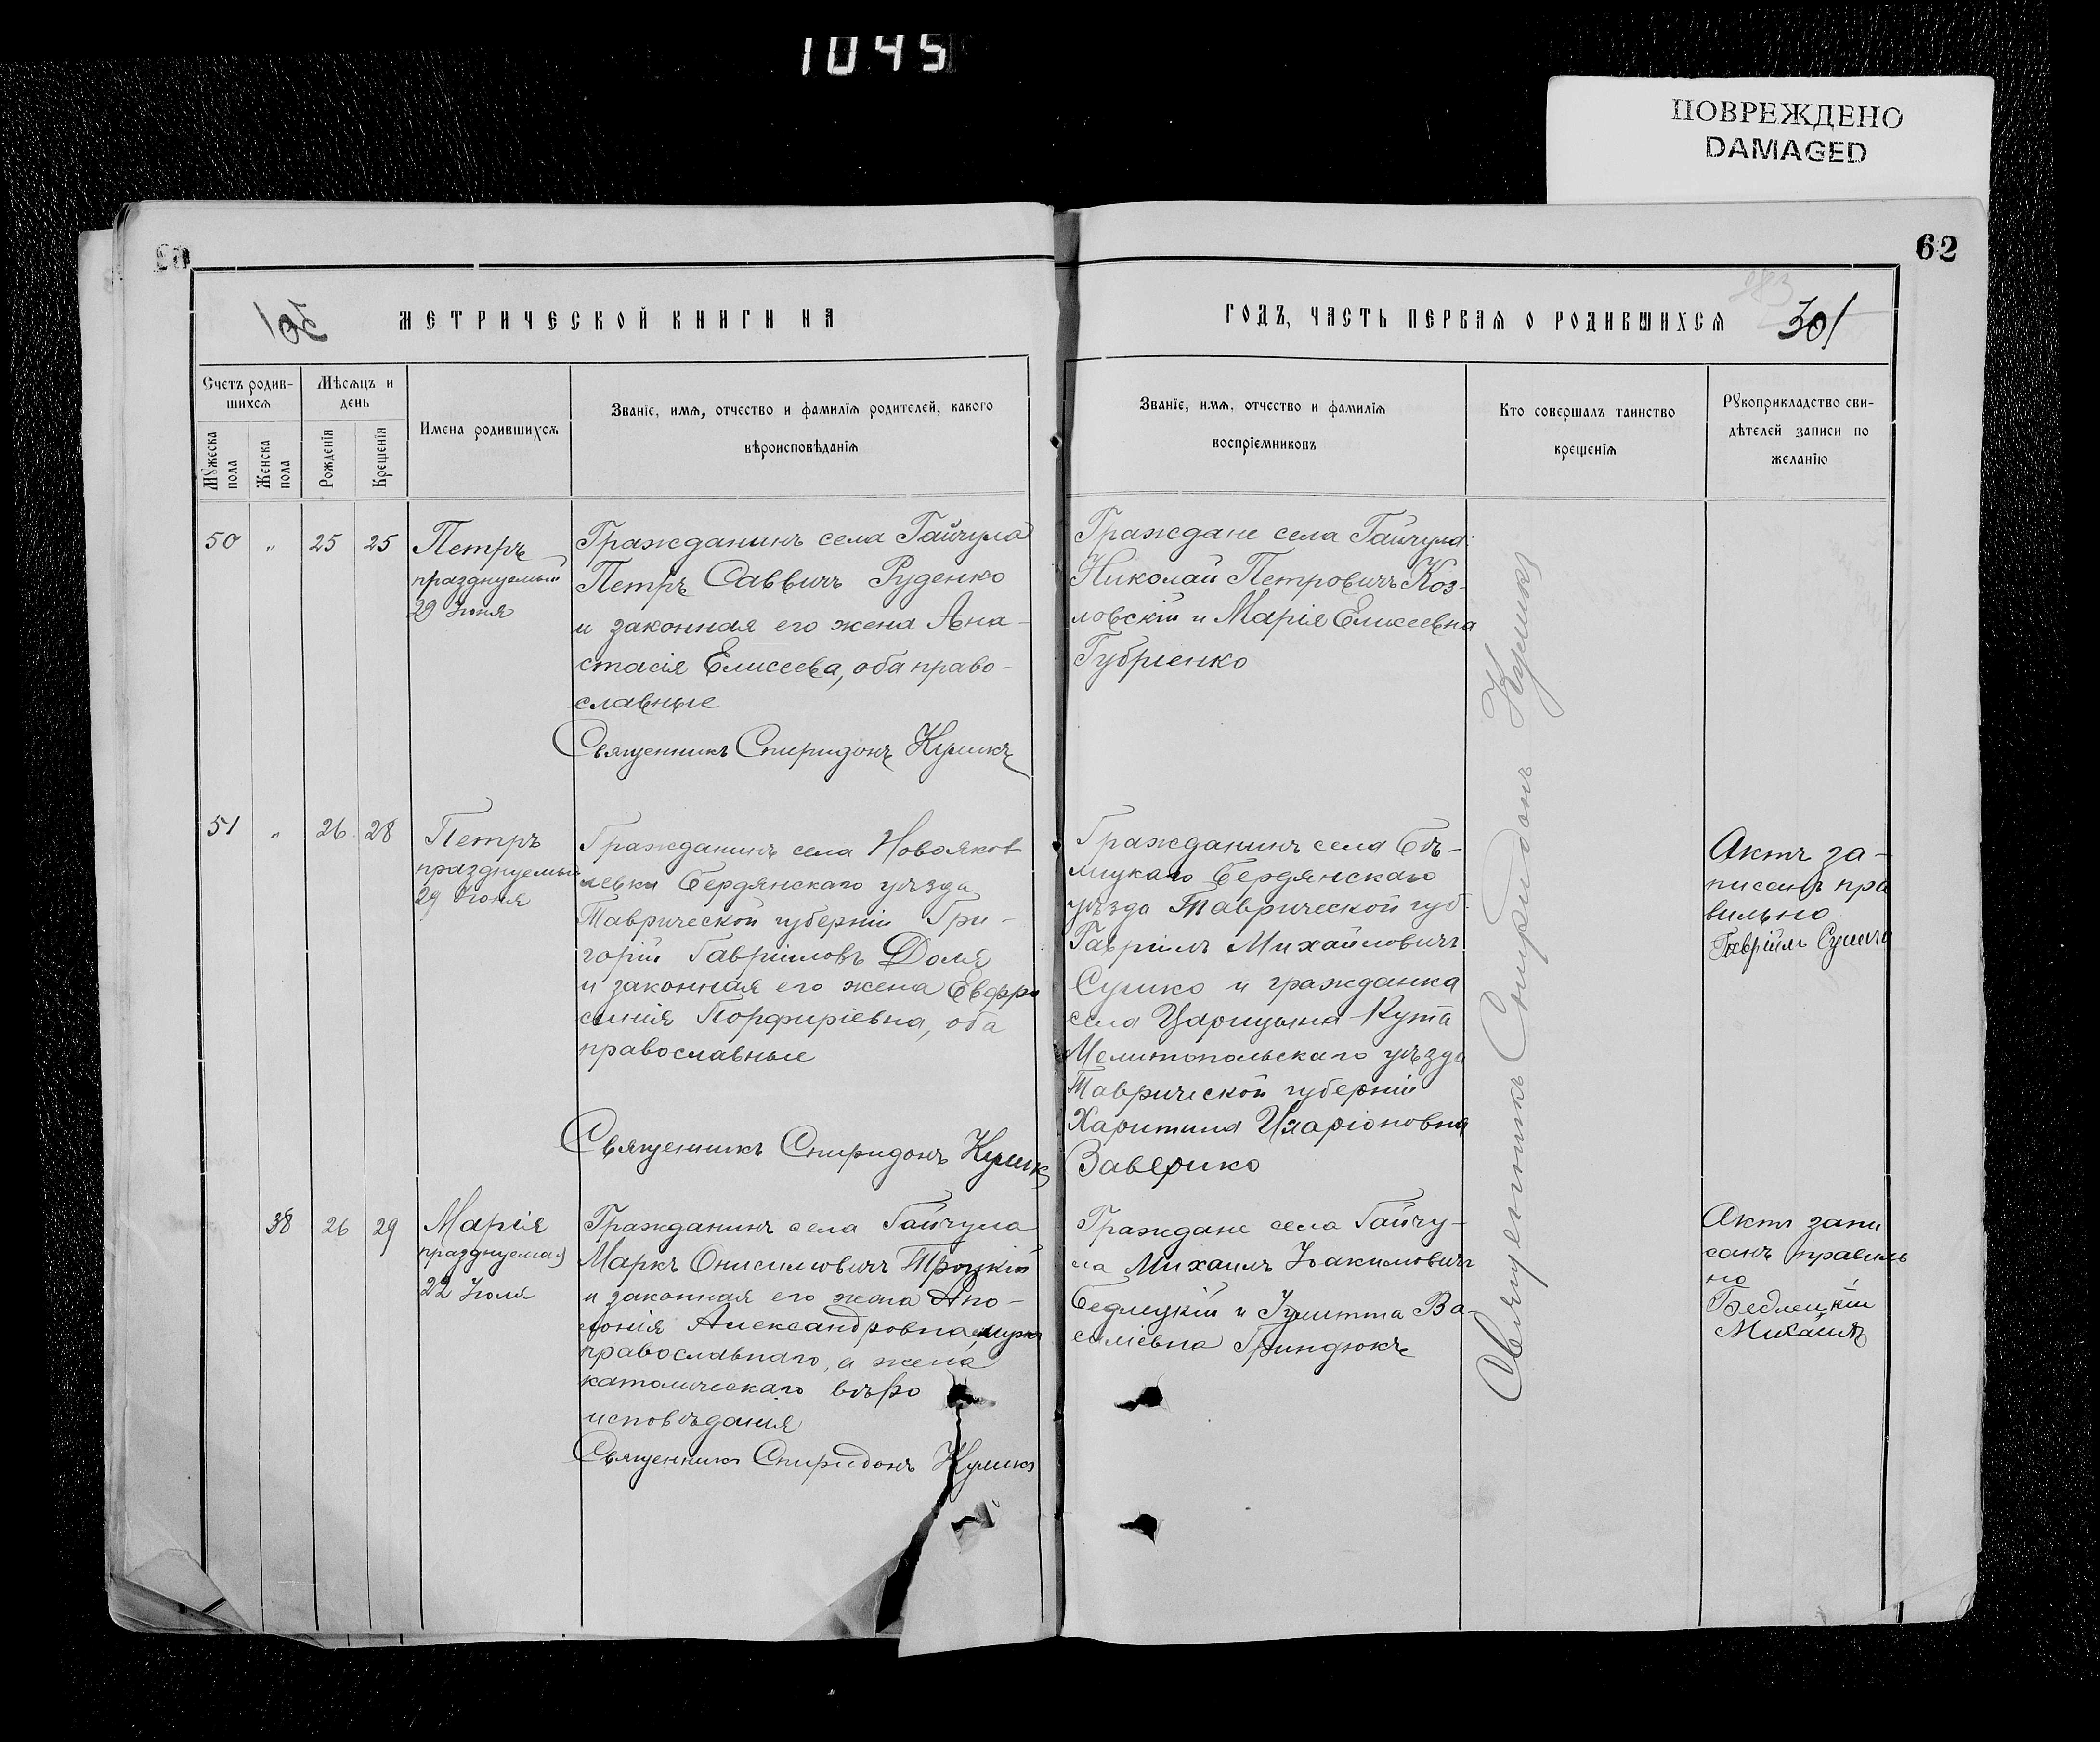 1045
ПОВРЕЖДЕНО
DAMAGED
62
МЕТРИЧЕСКОЙ КНИГИ НА
ГОДЪ, ЧАСТЬ ПЕРВАЯ О РОДИВШИХСЯ
301
Счетъ родив-
шихся
Мѣсяцъ и
день
Мужеска
пола
Женска
пола
Рожденія
Крещенія
Имена родившихся
Званіе, имя, отчество и фамилія родителей, какого
вѣроисповѣданія
Званіе, имя, отчество и фамилія
воспріемниковъ
Кто совершалъ таинство
крещенія
Рукоприкладство сви-
дѣтелей записи по
желанію
50 " 25 25
Петръ
празднуемый
29 Іюня
Гражданинъ села Гайчула
Петръ Саввичъ Руденко
и законная его жена Ана-
стасія Елисеева, оба право-
славные
Священникъ Спиридонъ Куликъ
Граждане села Гайчула:
Николай Петровичъ Коз-
ловскій и Марія Елисеевна
Губріенко
51 " 26 28
Петръ
празднуемый
29 Іюня
Гражданинъ села Новояков
левки Бердянскаго уѣзда
Таврической губерніи Гри-
горій Гавріиловъ Доля
и законная его жена Евфро
синія Порфиріевна, оба
православные
Священникъ Спиридонъ Куликъ
Гражданинъ села Бѣ-
лицкаго Бердянскаго
уѣзда Таврической губ.
Гавріилъ Михайловичъ
и гражданка
села Царицына-Кута
Мелитопольскаго уѣзда
Таврической губерніи
Харитина Иларіоновна
Заверико
Актъ за-
писанъ пра
вильно
Гавріилъ
38 26 29
Марія
празднуемая
22 Іюля
Гражданинъ села Гайчула
Маркъ Онисимовичъ Троцкій
и законная его жена Апо-
лонія Александровна, мужъ
православнаго, а жена
католическаго вѣро
исповѣданія
Священникъ Спиридонъ Куликъ
Граждане села Гайчу-
ла Михаилъ Іоакимовичъ
Бедлецкій и Іулитта Ва-
силіевна Гриндюкъ
Актъ запи
санъ правиль
но
Бедлецкій
Михаилъ
Священникъ Спиридонъ Куликъ